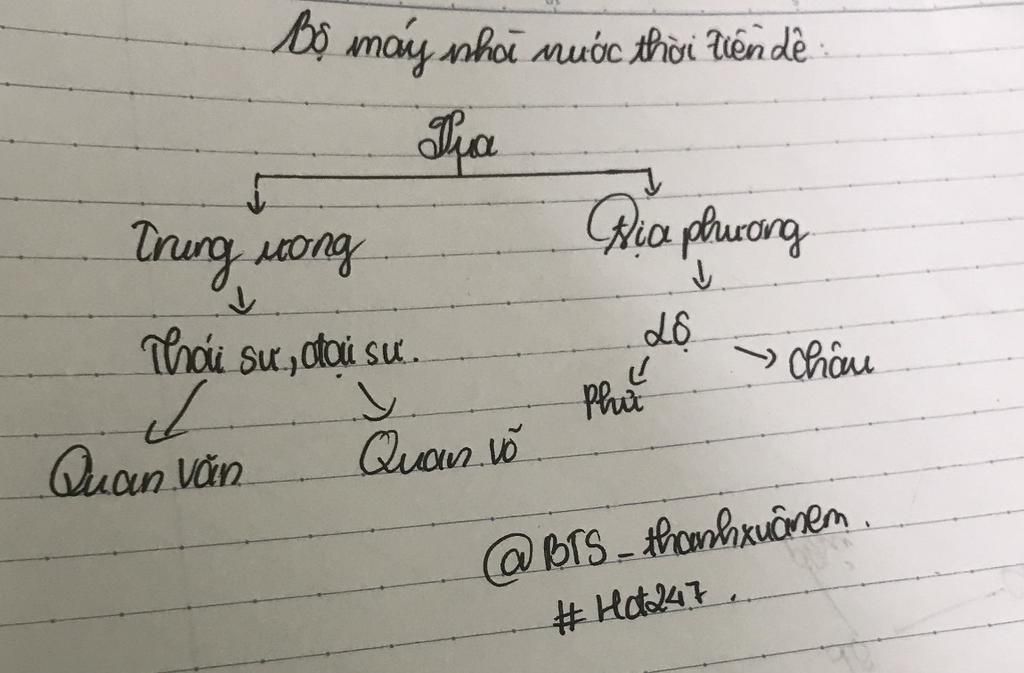 Bộ máy nhà nước thời Tiền Lê:
Vua
Trung ương Địa phương
Thái sư, đại sư. Lộ
Phủ Châu
Quan văn Quan võ
@BTS_thanhxuânem.
#Hd247.